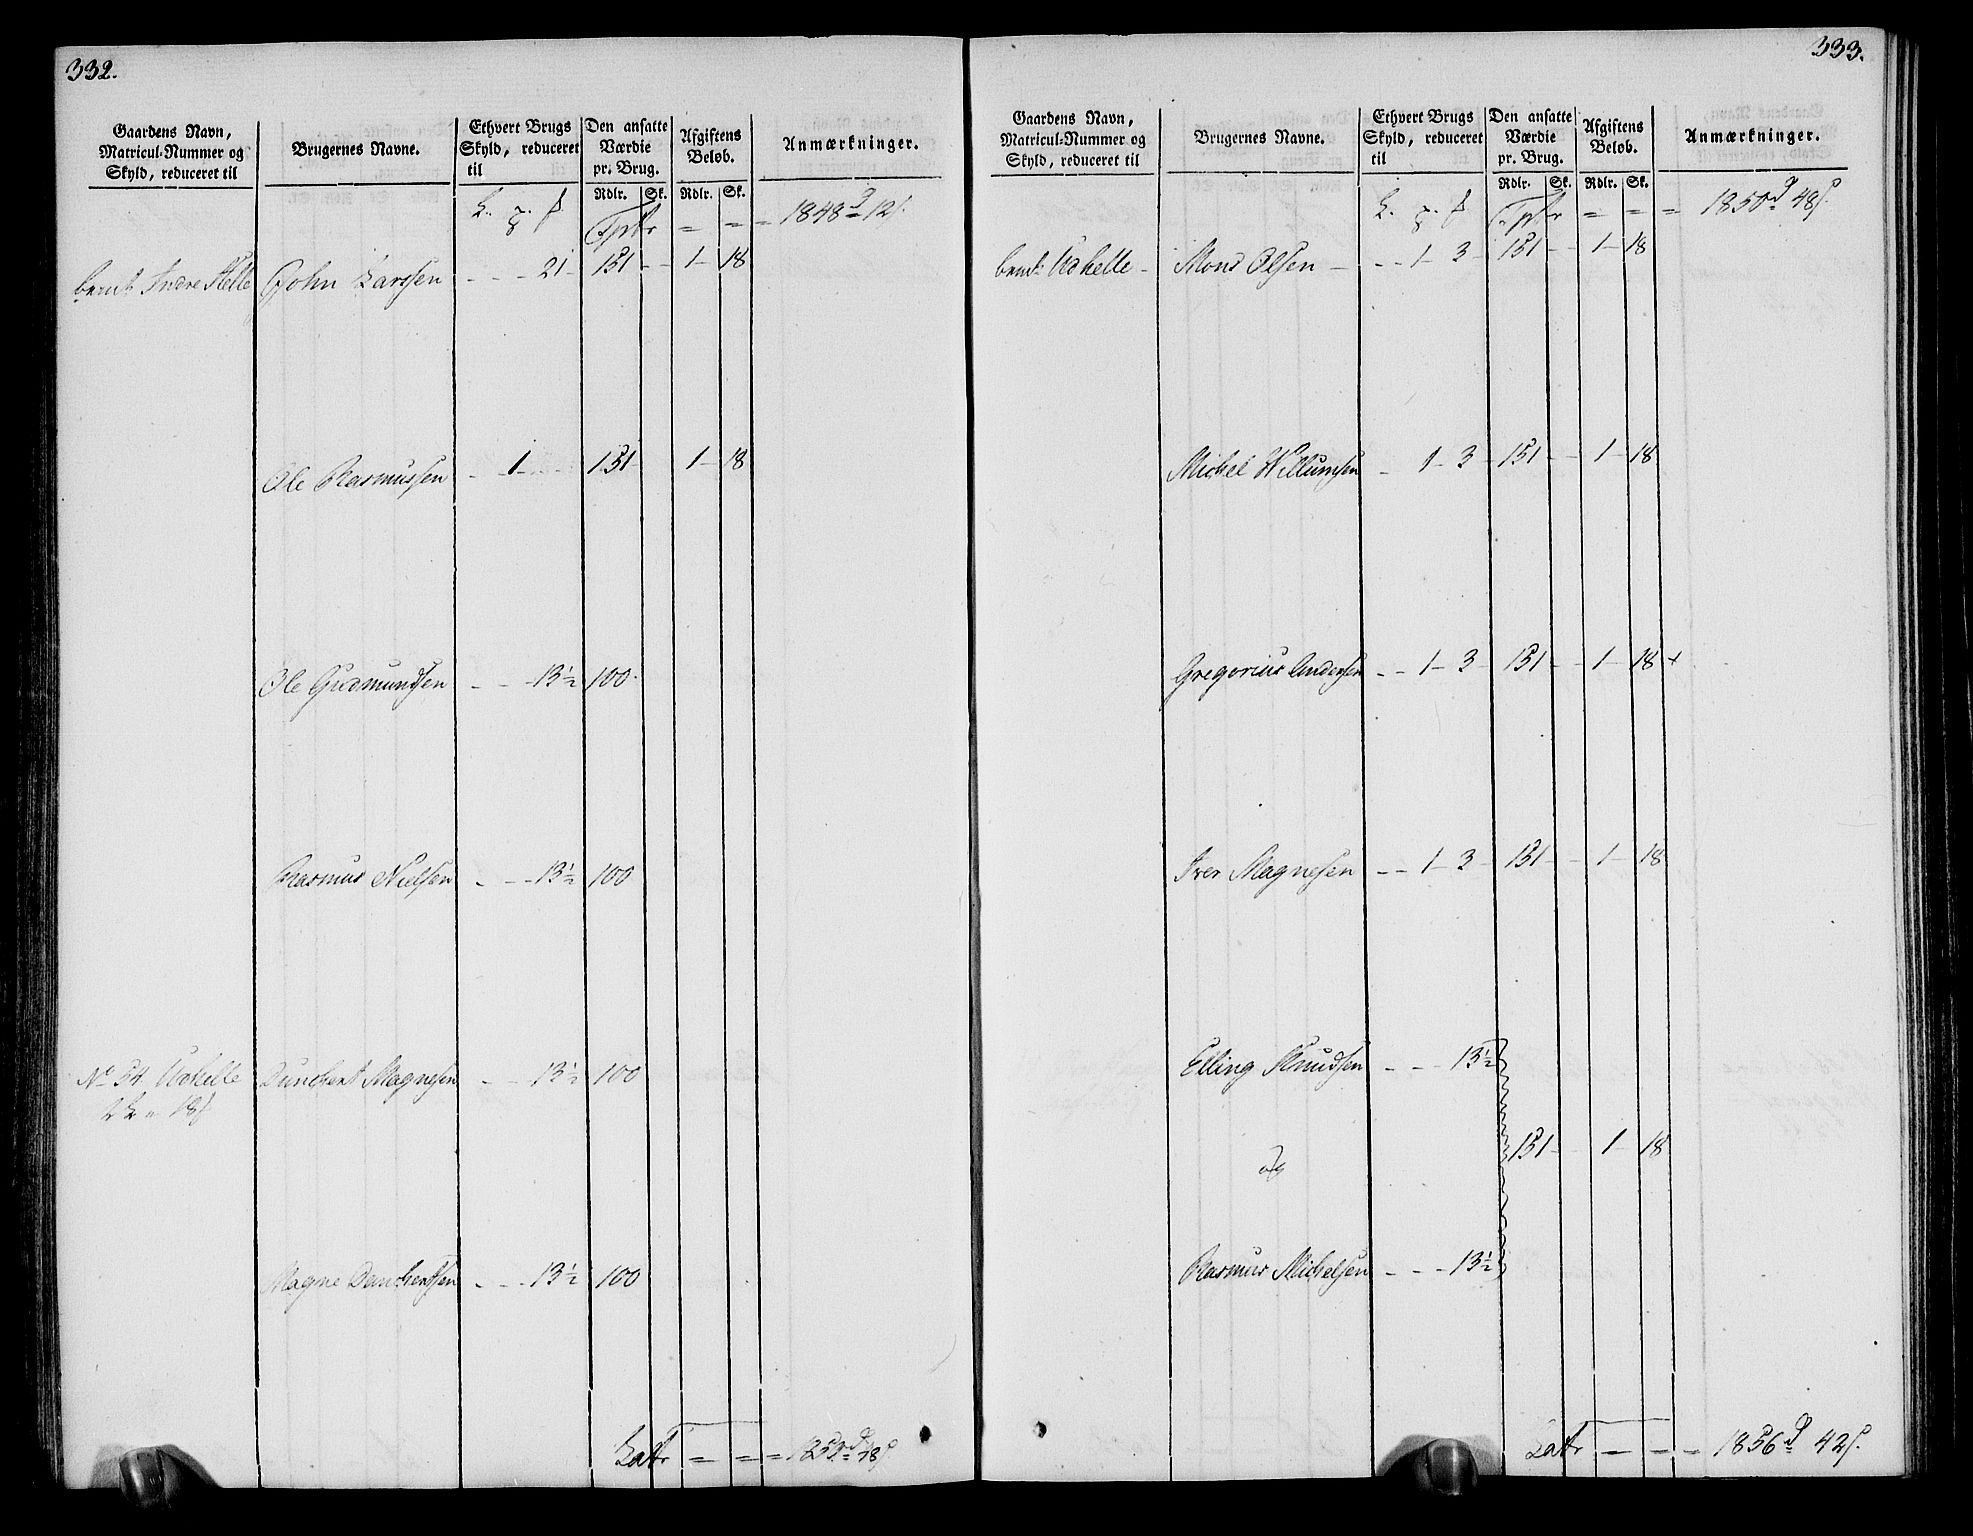 332.
Gaardens Navn, Matricul-Nummer og Skyld, reduceret til
Brugernes Navne.
Ethvert Brugs Skyld, reduceret til
Den ansatte Værdie pr. Brug.
Afgiftens Beløb.
Anmærkninger.
Rdlr. Sk. Rdlr. Sk.
Tptr = = = 1848 12
Indre Helle John Larssen - - - 21 - 151 - - 1 - 18
Ole Rasmussen - 1 - - - 151 - 1 - 18
Ole Gudmundsen - - - 13½ 100
Rasmus Nielsen - - - 13½ 100
No 54 Udhelle Danchert Magnesen - - - 13½ 100
Magne Danchertsen - - - 13½ 100
Latr = = = 1850 48
333.
Gaardens Navn, Matricul-Nummer og Skyld, reduceret til
Brugernes Navne.
Ethvert Brugs Skyld, reduceret til
Den ansatte Værdie pr. Brug.
Afgiftens Beløb.
Anmærkninger.
Rdlr. Sk. Rdlr. Sk.
Tptr = = = 1850 48
Udhelle - Mons Olsen - - - 1 - 3 - 151 - - 1 - 18
Michel Willumsen - 1 - 3 - 151 - - 1 - 18
Gregorius Andersen - - 1 - 3 - 151 - - 1 - 18 +
Iver Magnesen - - 1 - 3 - 151 - - 1 - 18
Elling Knudsen - - - 13½
og 151 - 1 - 18
Rasmus Michelsen - - - 13½
Latr = = = 1856 42